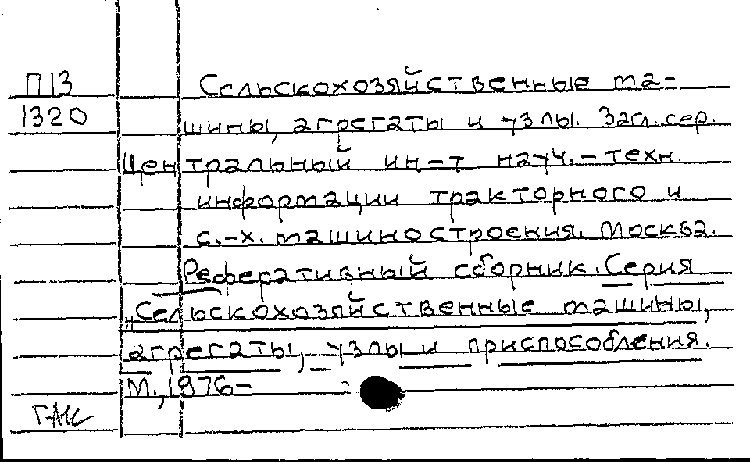 П13
1320
Сельскохозяйственные ма-
шины, агрегаты и узлы. Загл. сер.
Центральный ин-т науч.-техн.
информации тракторного и
с.-х. машиностроения. Москва.
Реферативный сборник. Серия
„Сельскохозяйственные машины,
агрегаты, узлы и приспособления.
М., 1976-